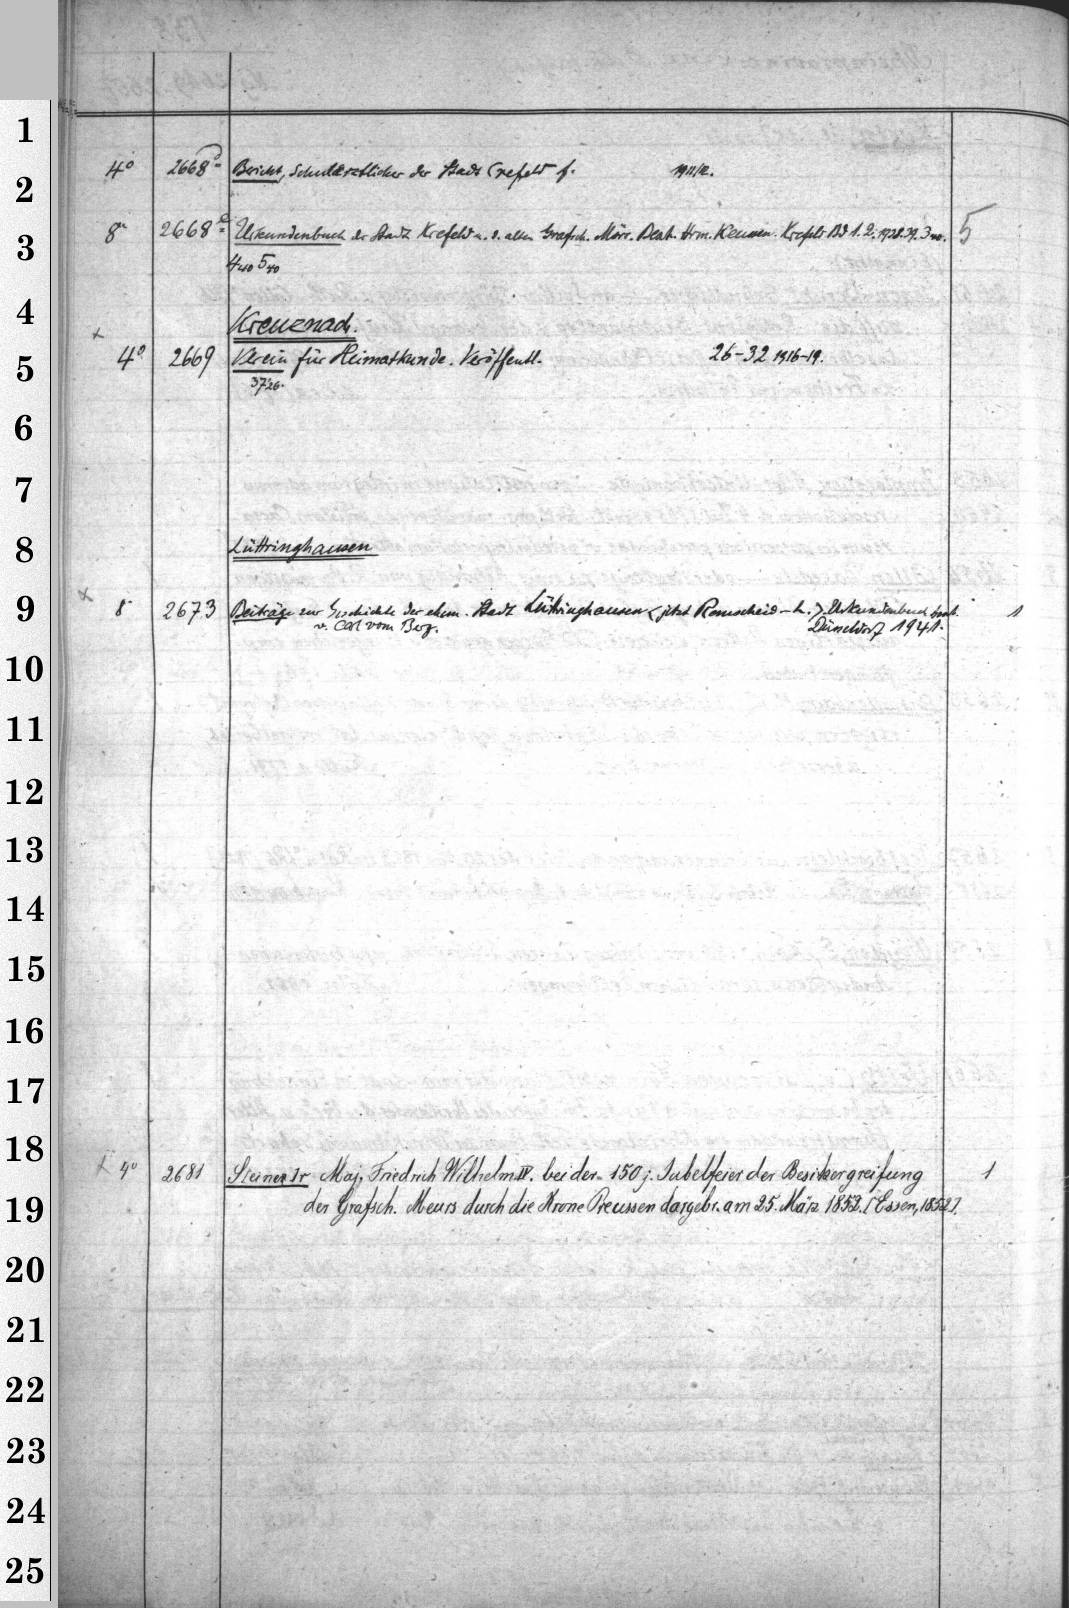 1
2
3
4
5
6
7
8
9
10
11
12
13
14
15
16
17
18
19
20
21
22
23
24
25
4° 2668 Bericht, Schulärztlicher der Stadt Crefeld f. 1911/12.
8° 2668 e Urkundenbuch der Stadt Krefeld u. d. alten Grafsch. Mörs. Bearb. Hrm. Keussen. Krefeld Bd 1. 2. 1938. 39. 3 40. 5
4 40 5 40
Kreuznach.
x 4° 2669 Verein für Heimatkunde. Veröffentl. 26-32 1916-19.
37 26.
Lüttringhausen
x 8° 2673 Beiträge zur Geschichte der ehem. Stadt Lüttringhausen (jetzt Remscheid-L.) Urkundenbuch bearb. 1
v. Carl vom Berg. Düsseldorf 1941.
x 4° 2681 Maj. Friedrich Wilhelm IV. bei der 150 j. Jubelfeier der Besitzergreifung 1
der Grafsch. Meurs durch die Krone Preussen dargebr. am 25. März 1852. [Essen, 1852].